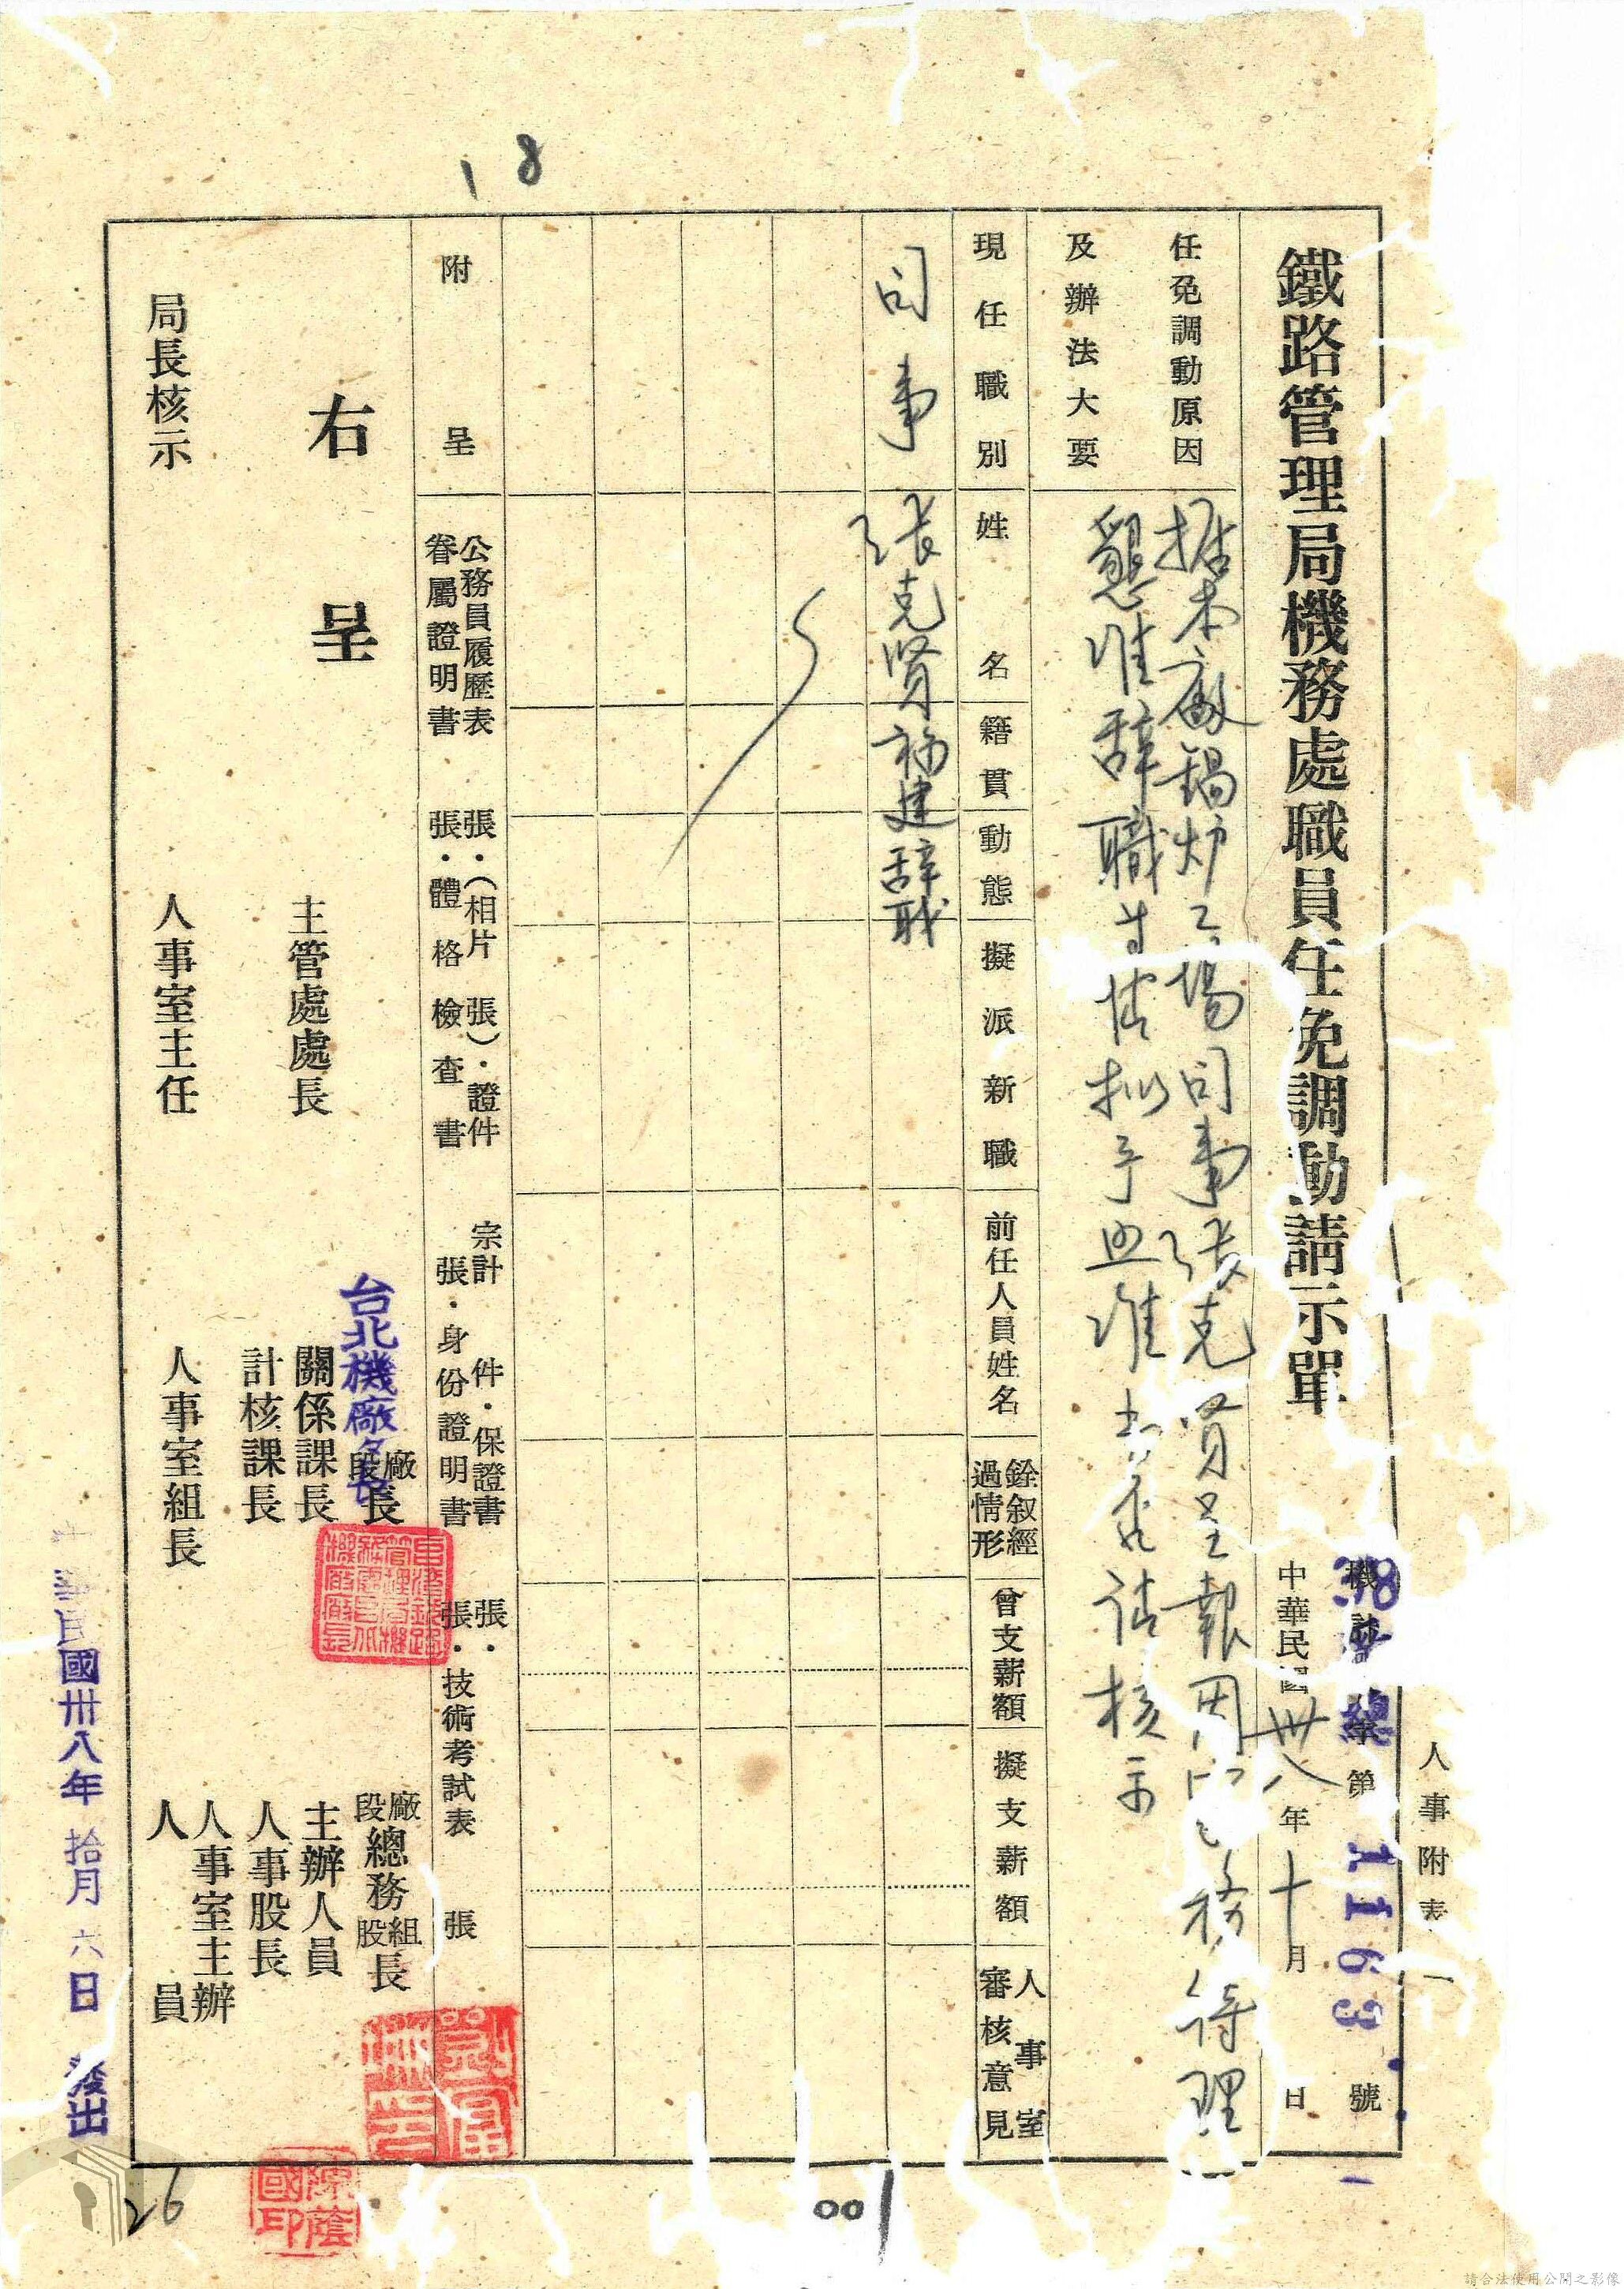 18
人事附表一
鐵路管理局機務處職員任免調動請示單
38 機 總 字第 11163 號
中華民國卅八年十月 日
任免調動原因及辦法大要
據本廠鍋炉工場司事張克賢呈報因 務待理
懇准辞職等情拟予照准 請核示
現任職別
姓名
籍貫
動態
擬派新職
前任人員姓名
銓叙經過情形
曾支薪額
擬支薪額
人事室審核意見
司事
張克賢
福建
辞职
附呈
公務員履歷表 張・(相片 張)・證件 宗計 件・保證書 張・
眷屬證明書 張・體格檢查書 張・身份證明書 張・技術考試表 張
右呈
台北機廠
廠段長
廠段總務組股長
主管處處長
關係課長
主辦人員
計核課長
人事股長
局長核示
人事室主任
人事室組長
人事室主辦人員
民國卅八年拾月六日發出
陳蔭國印
26
001
請合法使用公開之影像